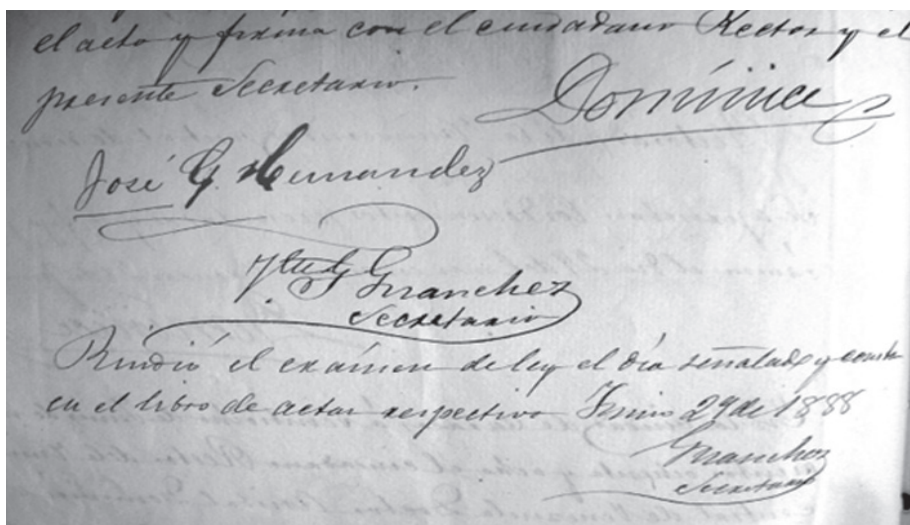 el acto y firma con el ciudadano Rector y el
presente Secretario.
Domínici
José G. Hernandez
Secretario
Rindió el exámen de ley el día señalado y consta
en el libro de actas respectivo Junio 29 de 1888
Secretario